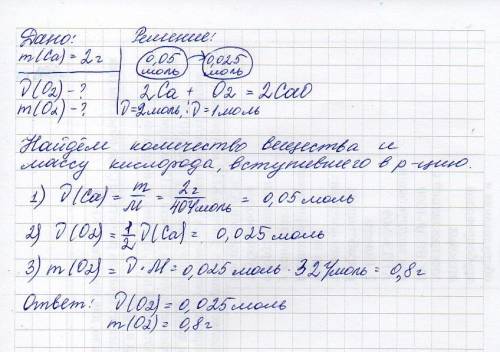 Дано: Решение:
m(Ca) = 2г 0,05 моль → 0,025 моль
ν(O2) - ? 2Ca + O2 = 2CaO
m(O2) - ? ν=2моль : ν=1моль
Найдём количество вещества и
массу кислорода, вступившего в р-цию.
1) ν(Ca) = m/M = 2г/40г/моль = 0,05 моль
2) ν(O2) = 1/2 ν(Ca) = 0,025 моль
3) m(O2) = ν · M = 0,025 моль · 32г/моль = 0,8г
Ответ: ν(O2) = 0,025 моль
m(O2) = 0,8г